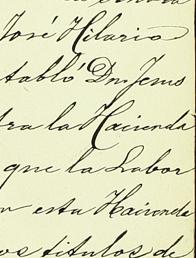 José Hilario
tabló Dn Jesus
tra la Hacienda
que la Labor
esta Hacienda
os titulos de